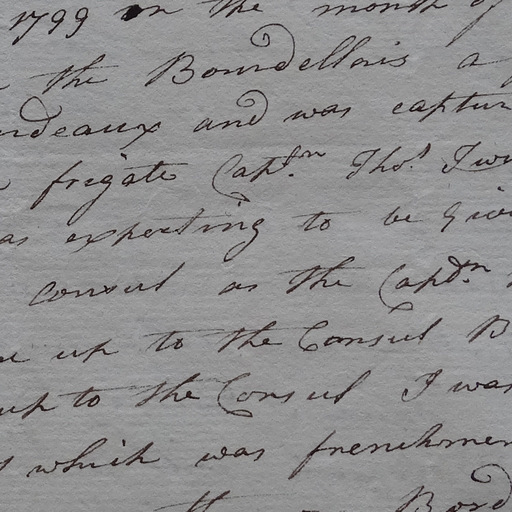 1799 in the month of
the Bourdellois a
and was captur
frigate Capt.n Tho.s
as expecting to be Give
consul as the Capt.n
up to the Consul B
up to the Consul I was
which was frenchmen
the Bord